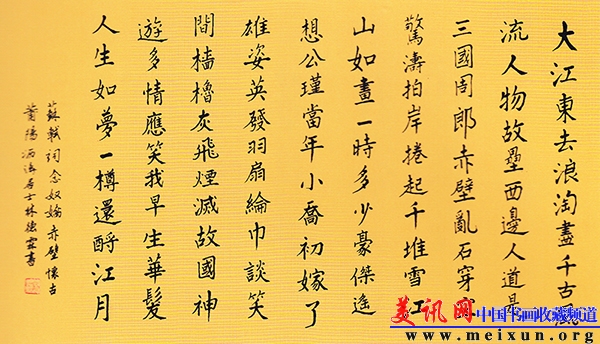 大江東去浪淘盡千古風
流人物故壘西邊人道是
三國周郎赤壁亂石穿空
驚濤拍岸捲起千堆雪江
山如畫一時多少豪傑遙
想公瑾當年小喬初嫁了
雄姿英發羽扇綸巾談笑
間檣櫓灰飛煙滅故國神
遊多情應笑我早生華髮
人生如夢一樽還酹江月
蘇軾詞念奴嬌赤壁懷古
居士林德霖書
美讯网
中国书画收藏频道
www.meixun.org